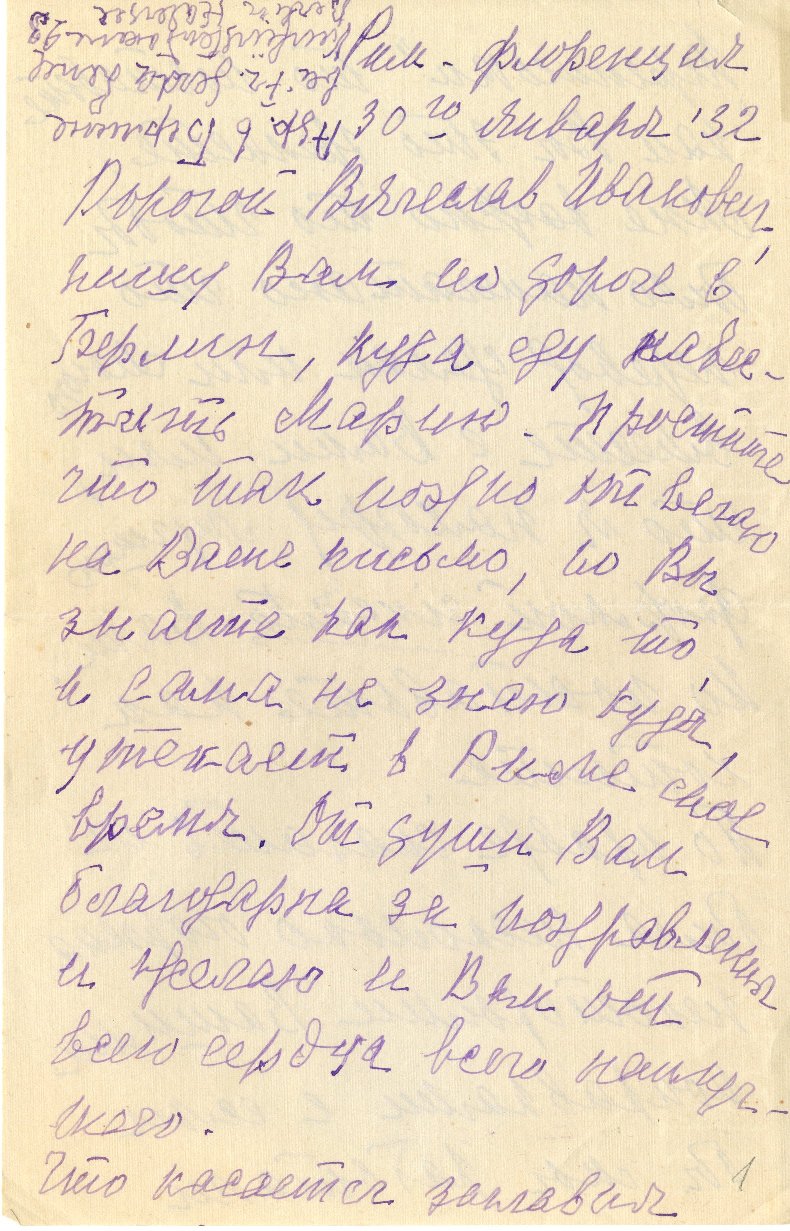 Рим - Флоренция
30го января '32
Адр. в Берлине
bei Fr. Gerda
Kurfürstendamm
Berlin Halensee
Дорогой Вячеслав Иванович,
пишу Вам по дороге в
Берлин, куда еду навес-
тить Марию. Простите
что так поздно отвечаю
на Ваше письмо, но Вы
знаете как куда то
и сама не знаю куда,
утекает в Риме мое
время. От души Вам
благодарна за поздравления
и желаю и Вам от
всего сердца всего наилуч-
шего.
Что касается заглавия
1